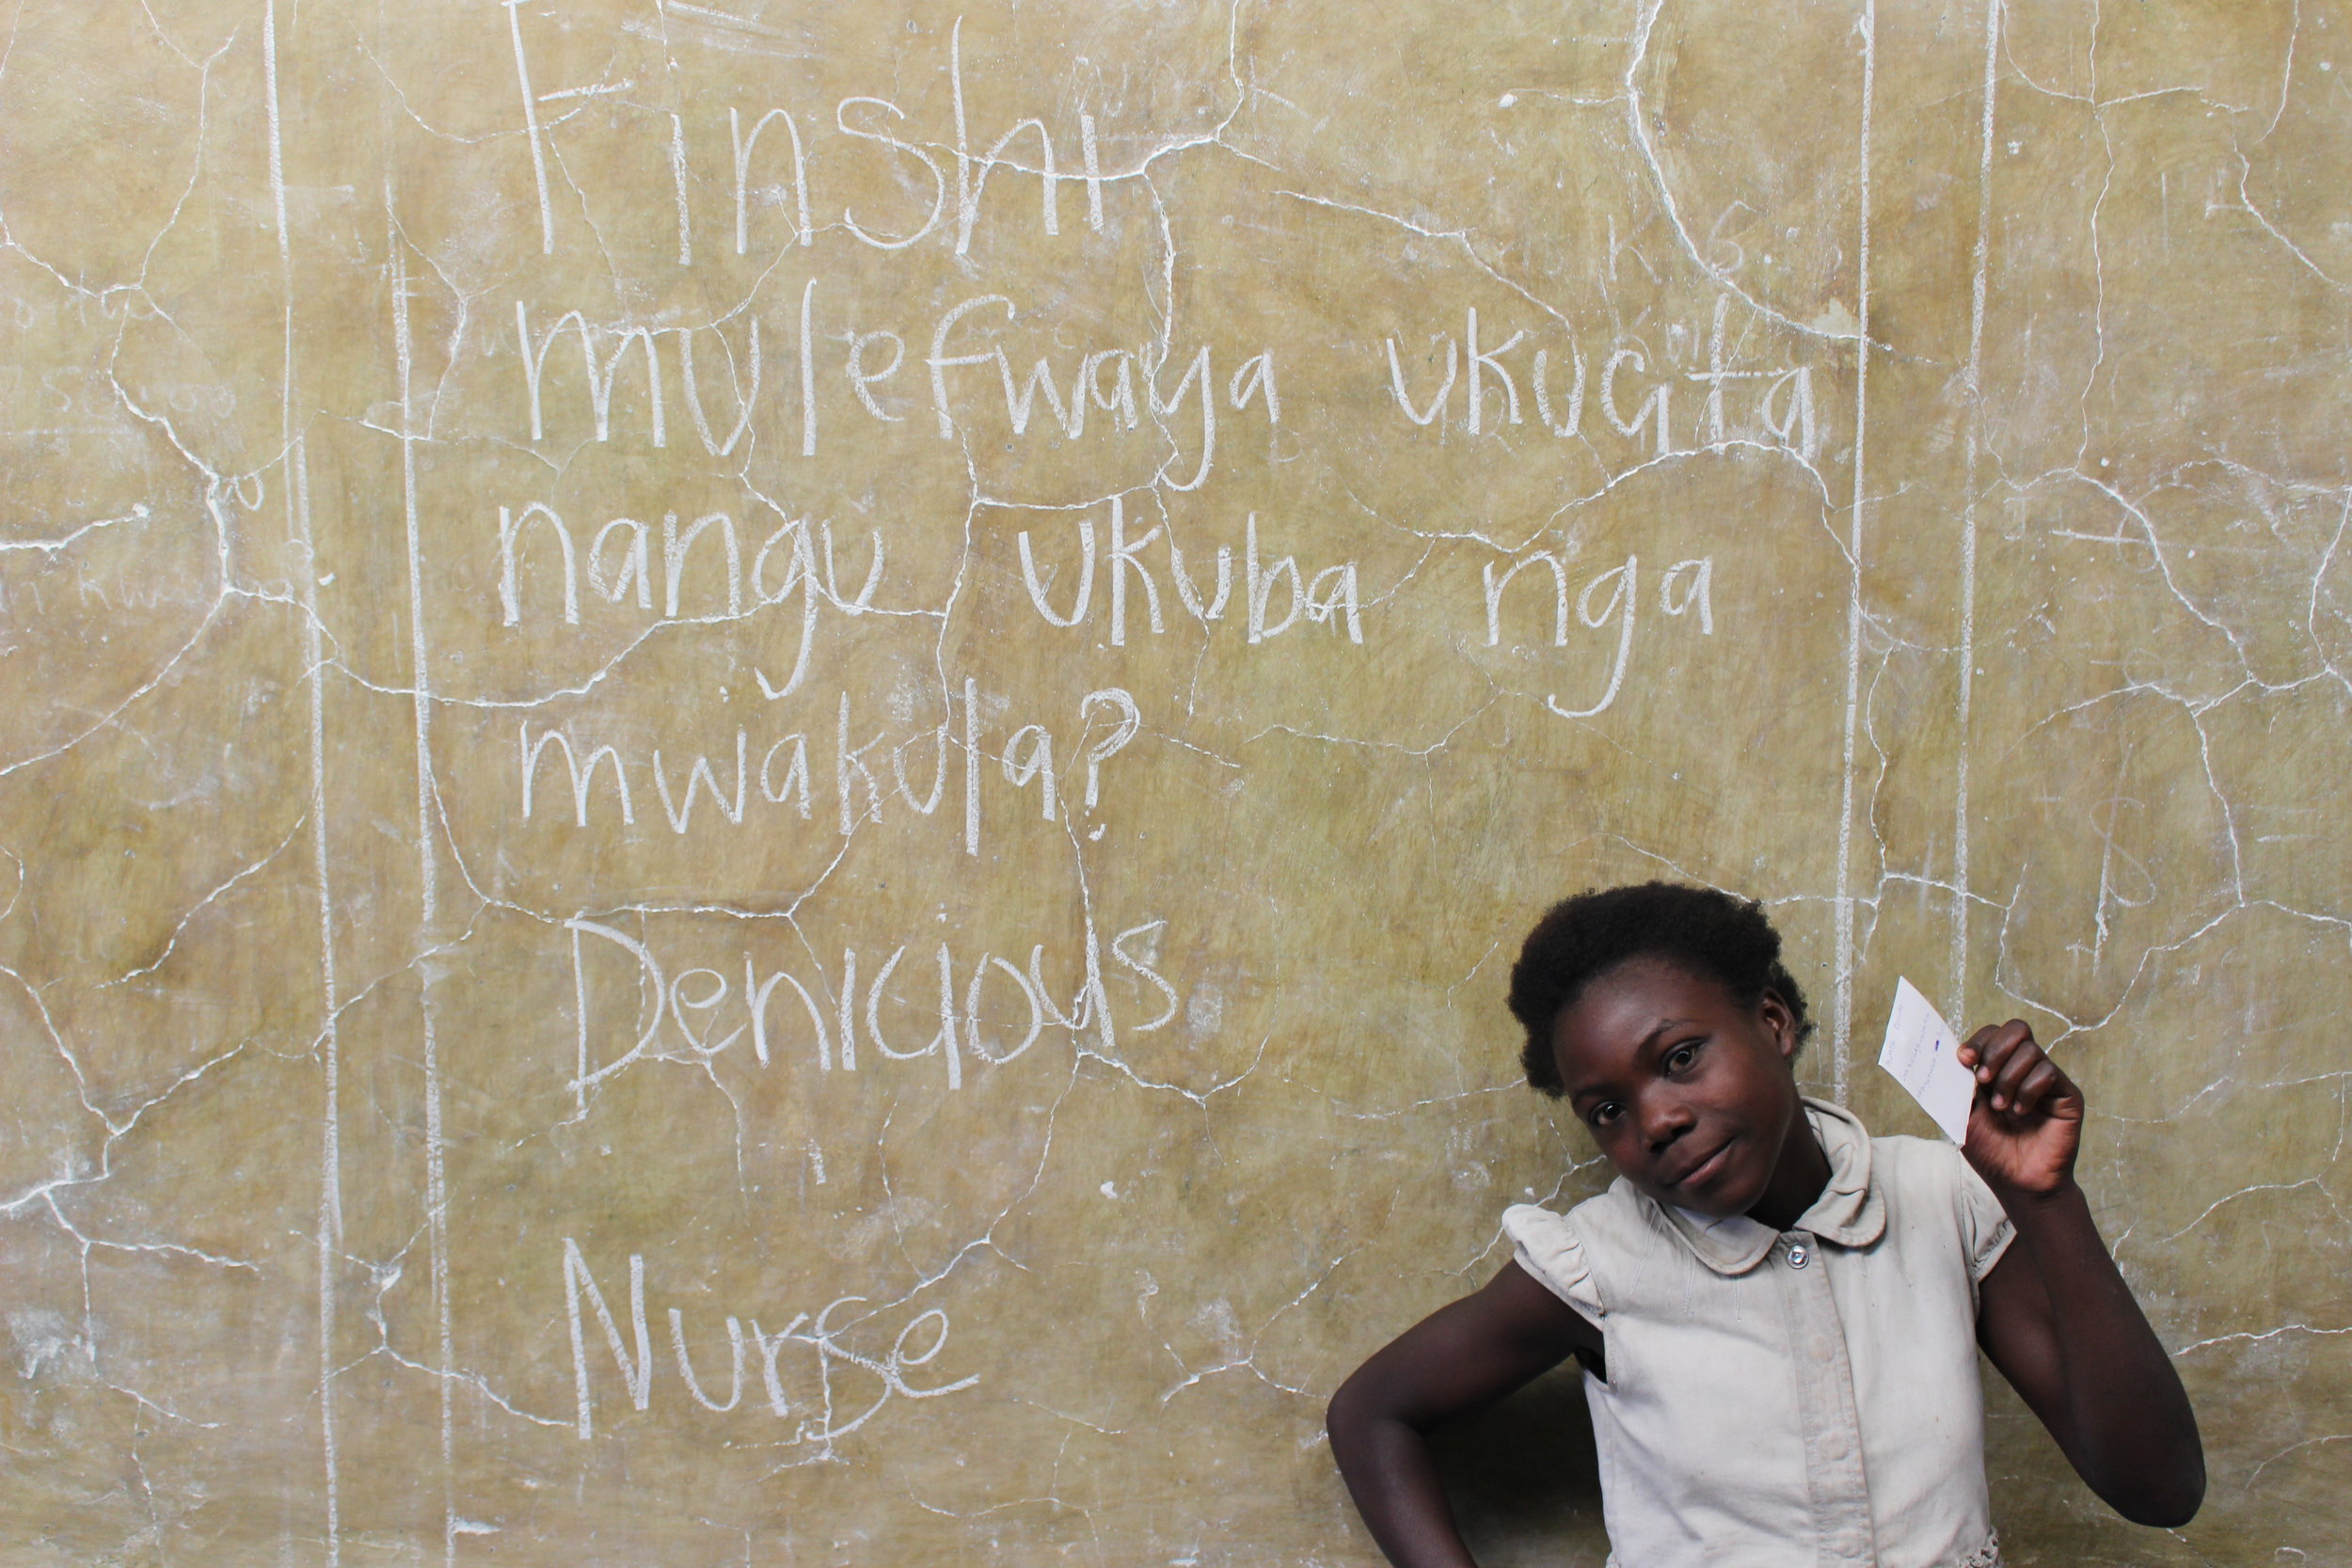 Finshi
mulefwaya ukucita
nangu ukuba nga
mwakula?
Denicious
Nurse